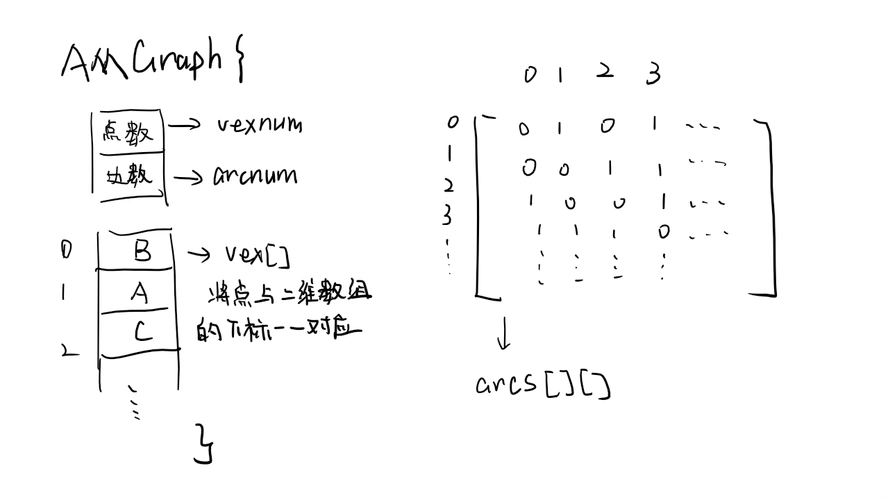 AMGraph{
点数 → vexnum
边数 → arcnum
0 B → vex[]
1 A 将点与二维数组
C 的下标一一对应
2
}
0 1 2 3
0 0 1 0 1 ...
1 0 0 1 1 ...
2 1 0 0 1 ...
3 1 1 1 0 ...
arcs[][]